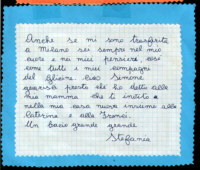 Anche se mi sono trasferita
a Milano sei sempre nel mio
cuore e nei miei pensieri, così
come tutti i miei compagni
del Ciao Simone
guarisci presto che ho detto alla
mia mamma che ti invito
nella mia casa nuova insieme alla
Caterina e alla
Un bacio grande grande
Stefania